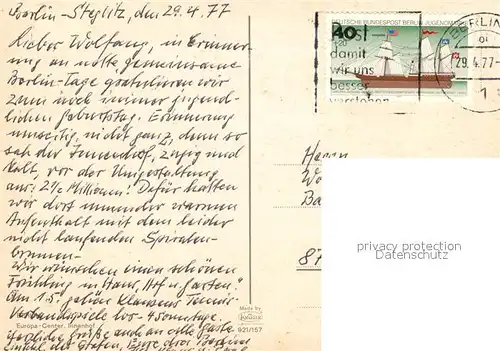 Berlin-Steglitz, den 29.4.77
Lieber Wolfgang, in Erinner-
ung an nette gemeinsame
Berlin-Tage gratulieren wir
zum noch immer jugend-
lichen Geburtstag. Erinnerung
umseitig, nicht ganz, denn so
sah der Innenhof, zugig und
kalt, vor der Umgestaltung
aus: 2½ Millionen! Dafür hatten
wir dort nunmehr warmen
Aufenthalt mit dem leider
nicht laufenden Spiralen-
brunnen.-
Wir wünschen einen schönen
Frühling in Haus, Hof u. Garten!
Am 1.5. gehen Klausens Tennis-
Verbandsspiele los - 4 Sonntage.
Herzliche Grüße auch an alle
Europa-Center, Innenhof
Made by
KRÜGER
921/157
DEUTSCHE BUNDESPOST BERLIN JUGENDMARKE
40
+20
Post-
damit
wir uns
besser
verstehen
BERLIN
29.4.77
1
Herrn
Ba
87
privacy protection
Datenschutz